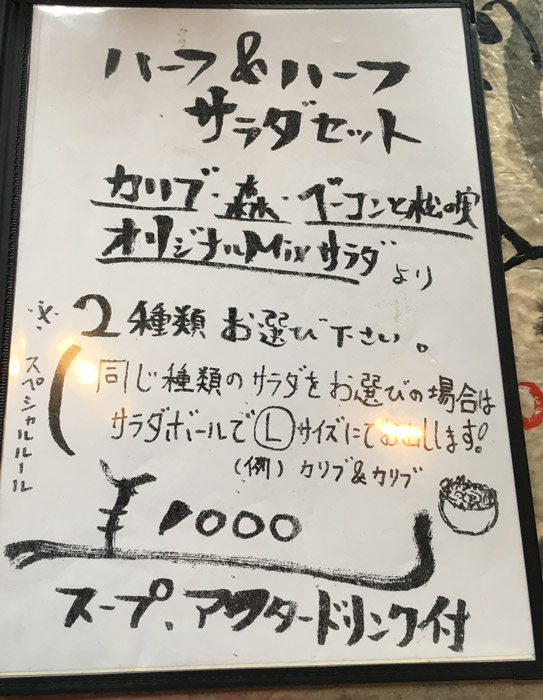 ハーフ&ハーフ
サラダセット
カリブ・森・ベーコンと松の実
オリジナルMixサラダより
2種類お選び下さい。
※スペシャルルール
同じ種類のサラダをお選びの場合は
サラダボールでⓁサイズにてお出しします!
(例)カリブ&カリブ
¥1000
スープ、アフタードリンク付